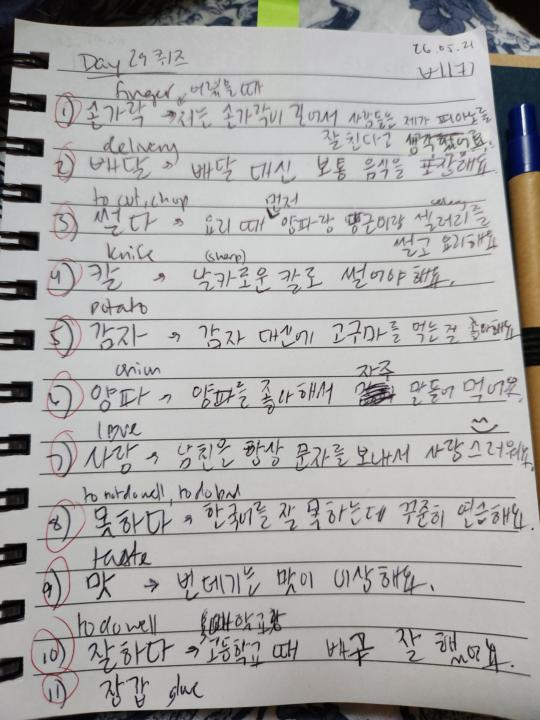 Day 29 퀴즈
26.05.21
베티
finger, 어렸을 때
1) 손가락 → 저는 손가락이 길어서 사람들은 제가 피아노를
잘 친다고 생각했어요.
delivery
2) 배달 → 배달 대신 보통 음식을 포장해요.
to cut, chop 먼저
3) 썰다 → 요리 때 양파랑 당근이랑 셀러리를
썰고 요리해요
knife (sharp)
4) 칼 → 날카로운 칼로 썰어야 해요.
potato
5) 감자 → 감자 대신에 고구마를 먹는 걸 좋아해요
onion 자주
6) 양파 → 양파를 좋아해서 만들어 먹어요.
love
7) 사랑 → 남친은 항상 문자를 보내서 사랑스러워요.
to not do well, to do bad
8) 못하다 → 한국어를 잘 못하는데 꾸준히 연습해요.
taste
9) 맛 → 번데기는 맛이 이상해요.
to do well
10) 잘하다 → 고등학교 때 배구 잘 했어요.
11) 장갑 glue